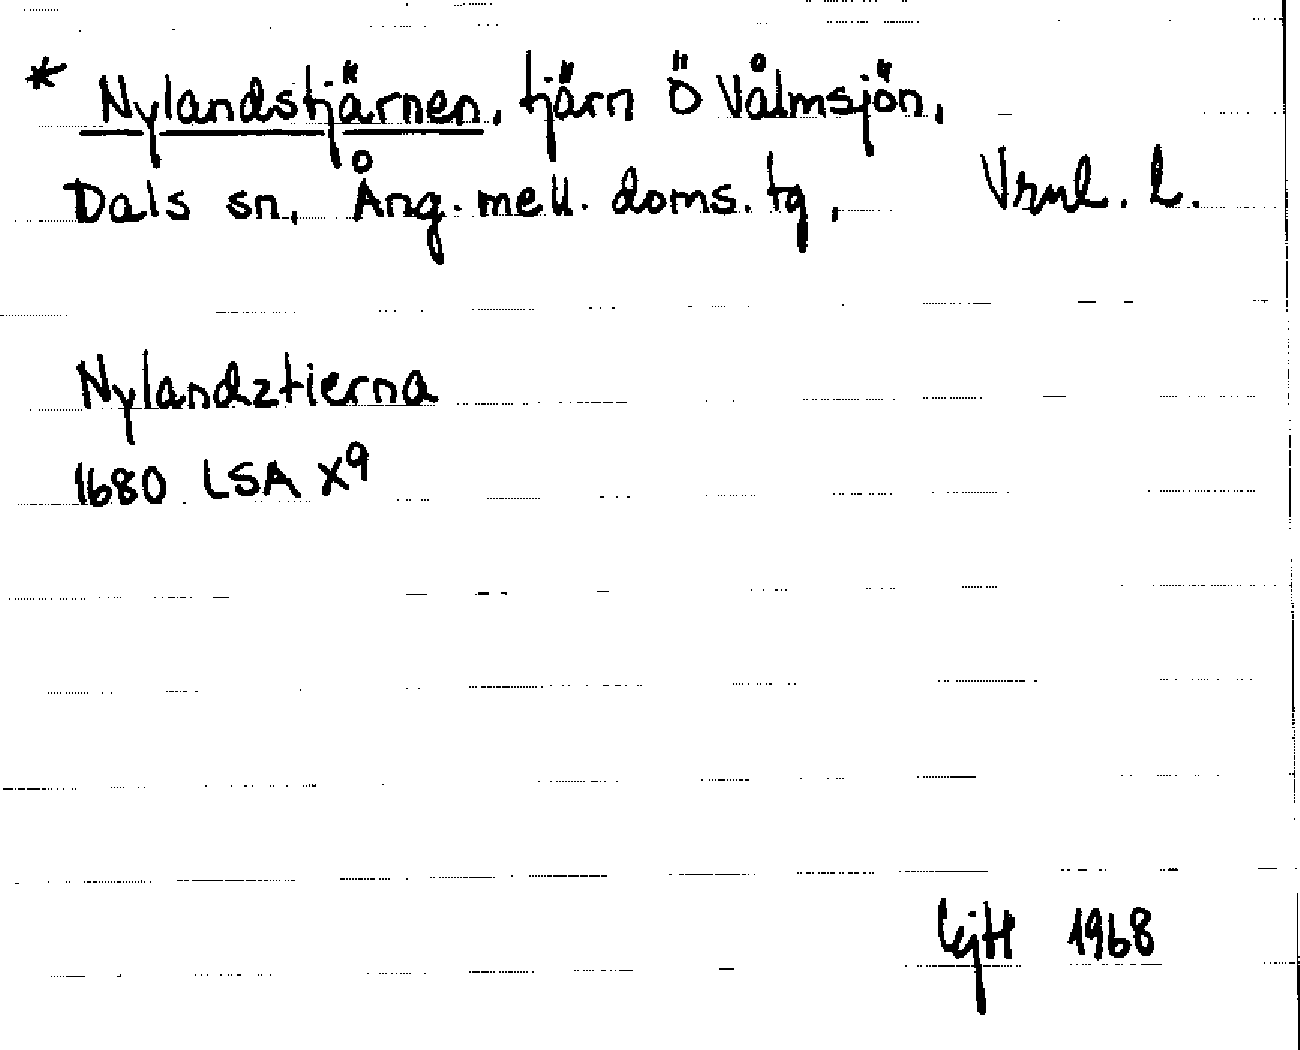 * Nylandstjärnen, tjärn Ö Vålmsjön,
Dals sn, Ång. mell. doms. tg, Vrml. l.
Nylandztierna
1680 LSA X9
1968